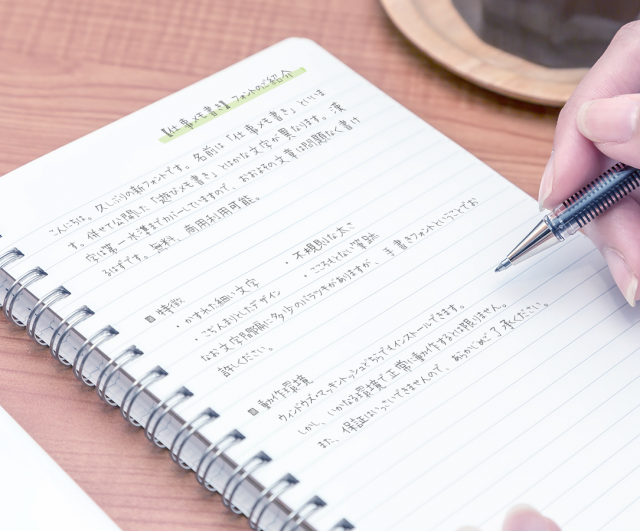 【仕事メモ書き】フォントのご紹介
こんにちは。久しぶりの新フォントです。名前は「仕事メモ書き」といいま
す。併せて公開した「遊びメモ書き」とはかな文字が異なります。漢
字は第一水準までカバーしていますので、おおよその文章は問題なく書け
るはずです。無料、商用利用可能。
■ 特徴
・かすれた細い文字 ・不規則な太さ
・こぢんまりとしたデザイン ・こころもとない筆跡
なお文字間隔に多少のバラツキがありますが、手書きフォントということでお
許しください。
■ 動作環境
ウィンドウズ・マッキントッシュどちらでもインストールできます。
しかし、いかなる環境で正常に動作するとは限りません。
また、保証はいっさいできませんので、あらかじめご了承ください。